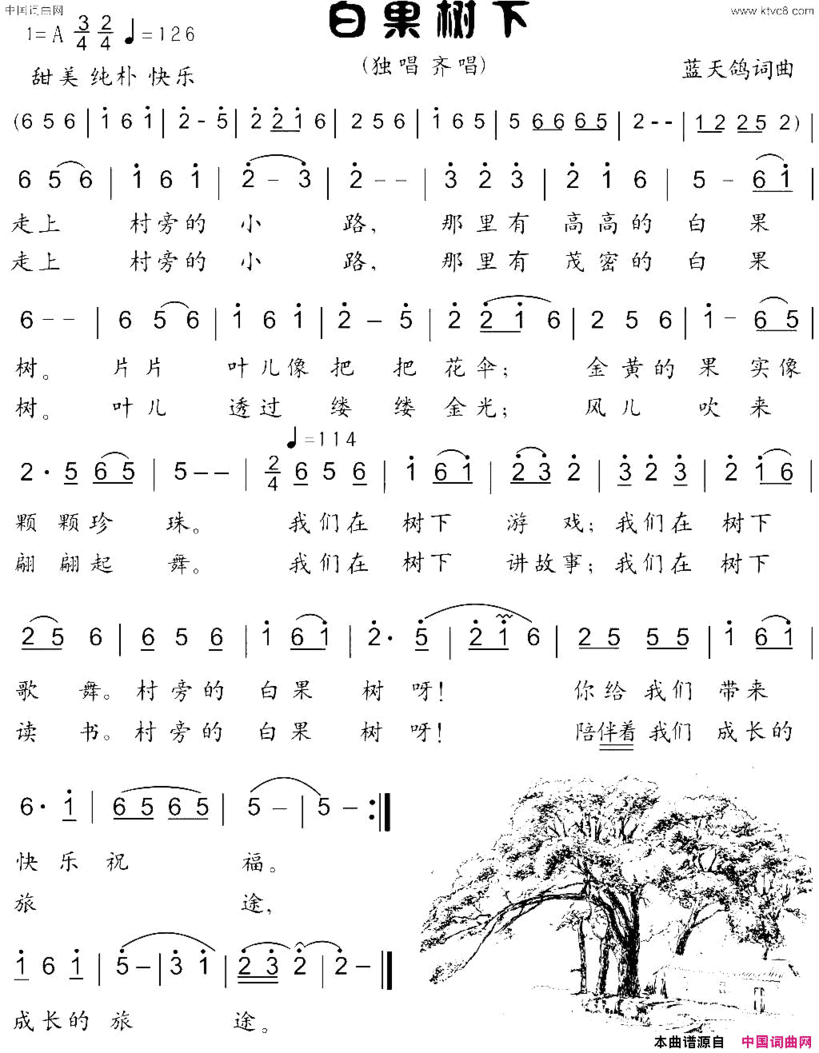 中国词曲网 白果树下 www.ktvc8.com
1=A 3/4 2/4 ♩=126
甜美 纯朴 快乐 (独唱 齐唱) 蓝天鸽词曲
(6 5 6 | i 6 i | 2̇ - 5 | 2̇ 2̇ i 6 | 2 5 6 | i 6 5 | 5 6 6 6 5 | 2 - - | 1 2 2 5 2) |
6 5 6 | i 6 i | 2̇ - 3̇ | 2̇ - - | 3̇ 2̇ 3̇ | 2̇ i 6 | 5 - 6 i |
走上 村旁的 小 路, 那里有 高高的 白 果
走上 村旁的 小 路, 那里有 茂密的 白 果
6 - - | 6 5 6 | i 6 i | 2̇ - 5̇ | 2̇ 2̇ i 6 | 2 5 6 | i - 6 5 |
树。 片片 叶儿像 把 把 花伞; 金黄的 果 实像
树。 叶儿 透过 缕 缕 金光; 风儿 吹来
♩=114
2· 5 6 5 | 5 - - | 2/4 6 5 6 | i 6 i | 2̇ 3̇ 2̇ | 3̇ 2̇ 3̇ | 2̇ i 6 |
颗 颗珍 珠。 我们在 树下 游 戏; 我们在 树下
翩 翩起 舞。 我们在 树下 讲故事; 我们在 树下
2 5 6 | 6 5 6 | i 6 i | 2̇· 5̇ | 2̇ i 6 | 2 5 5 5 | i 6 i |
歌 舞。村旁的 白果 树 呀! 你给 我们 带来
读 书。村旁的 白果 树 呀! 陪伴着 我们 成长的
6· i | 6 5 6 5 | 5 - | 5 - :||
快 乐祝 福。
旅 途,
i 6 i | 5̇ - | 3̇ i | 2̇ 3̇ 2̇ | 2̇ - ||
成长的 旅 途。
本曲谱源自 中国词曲网